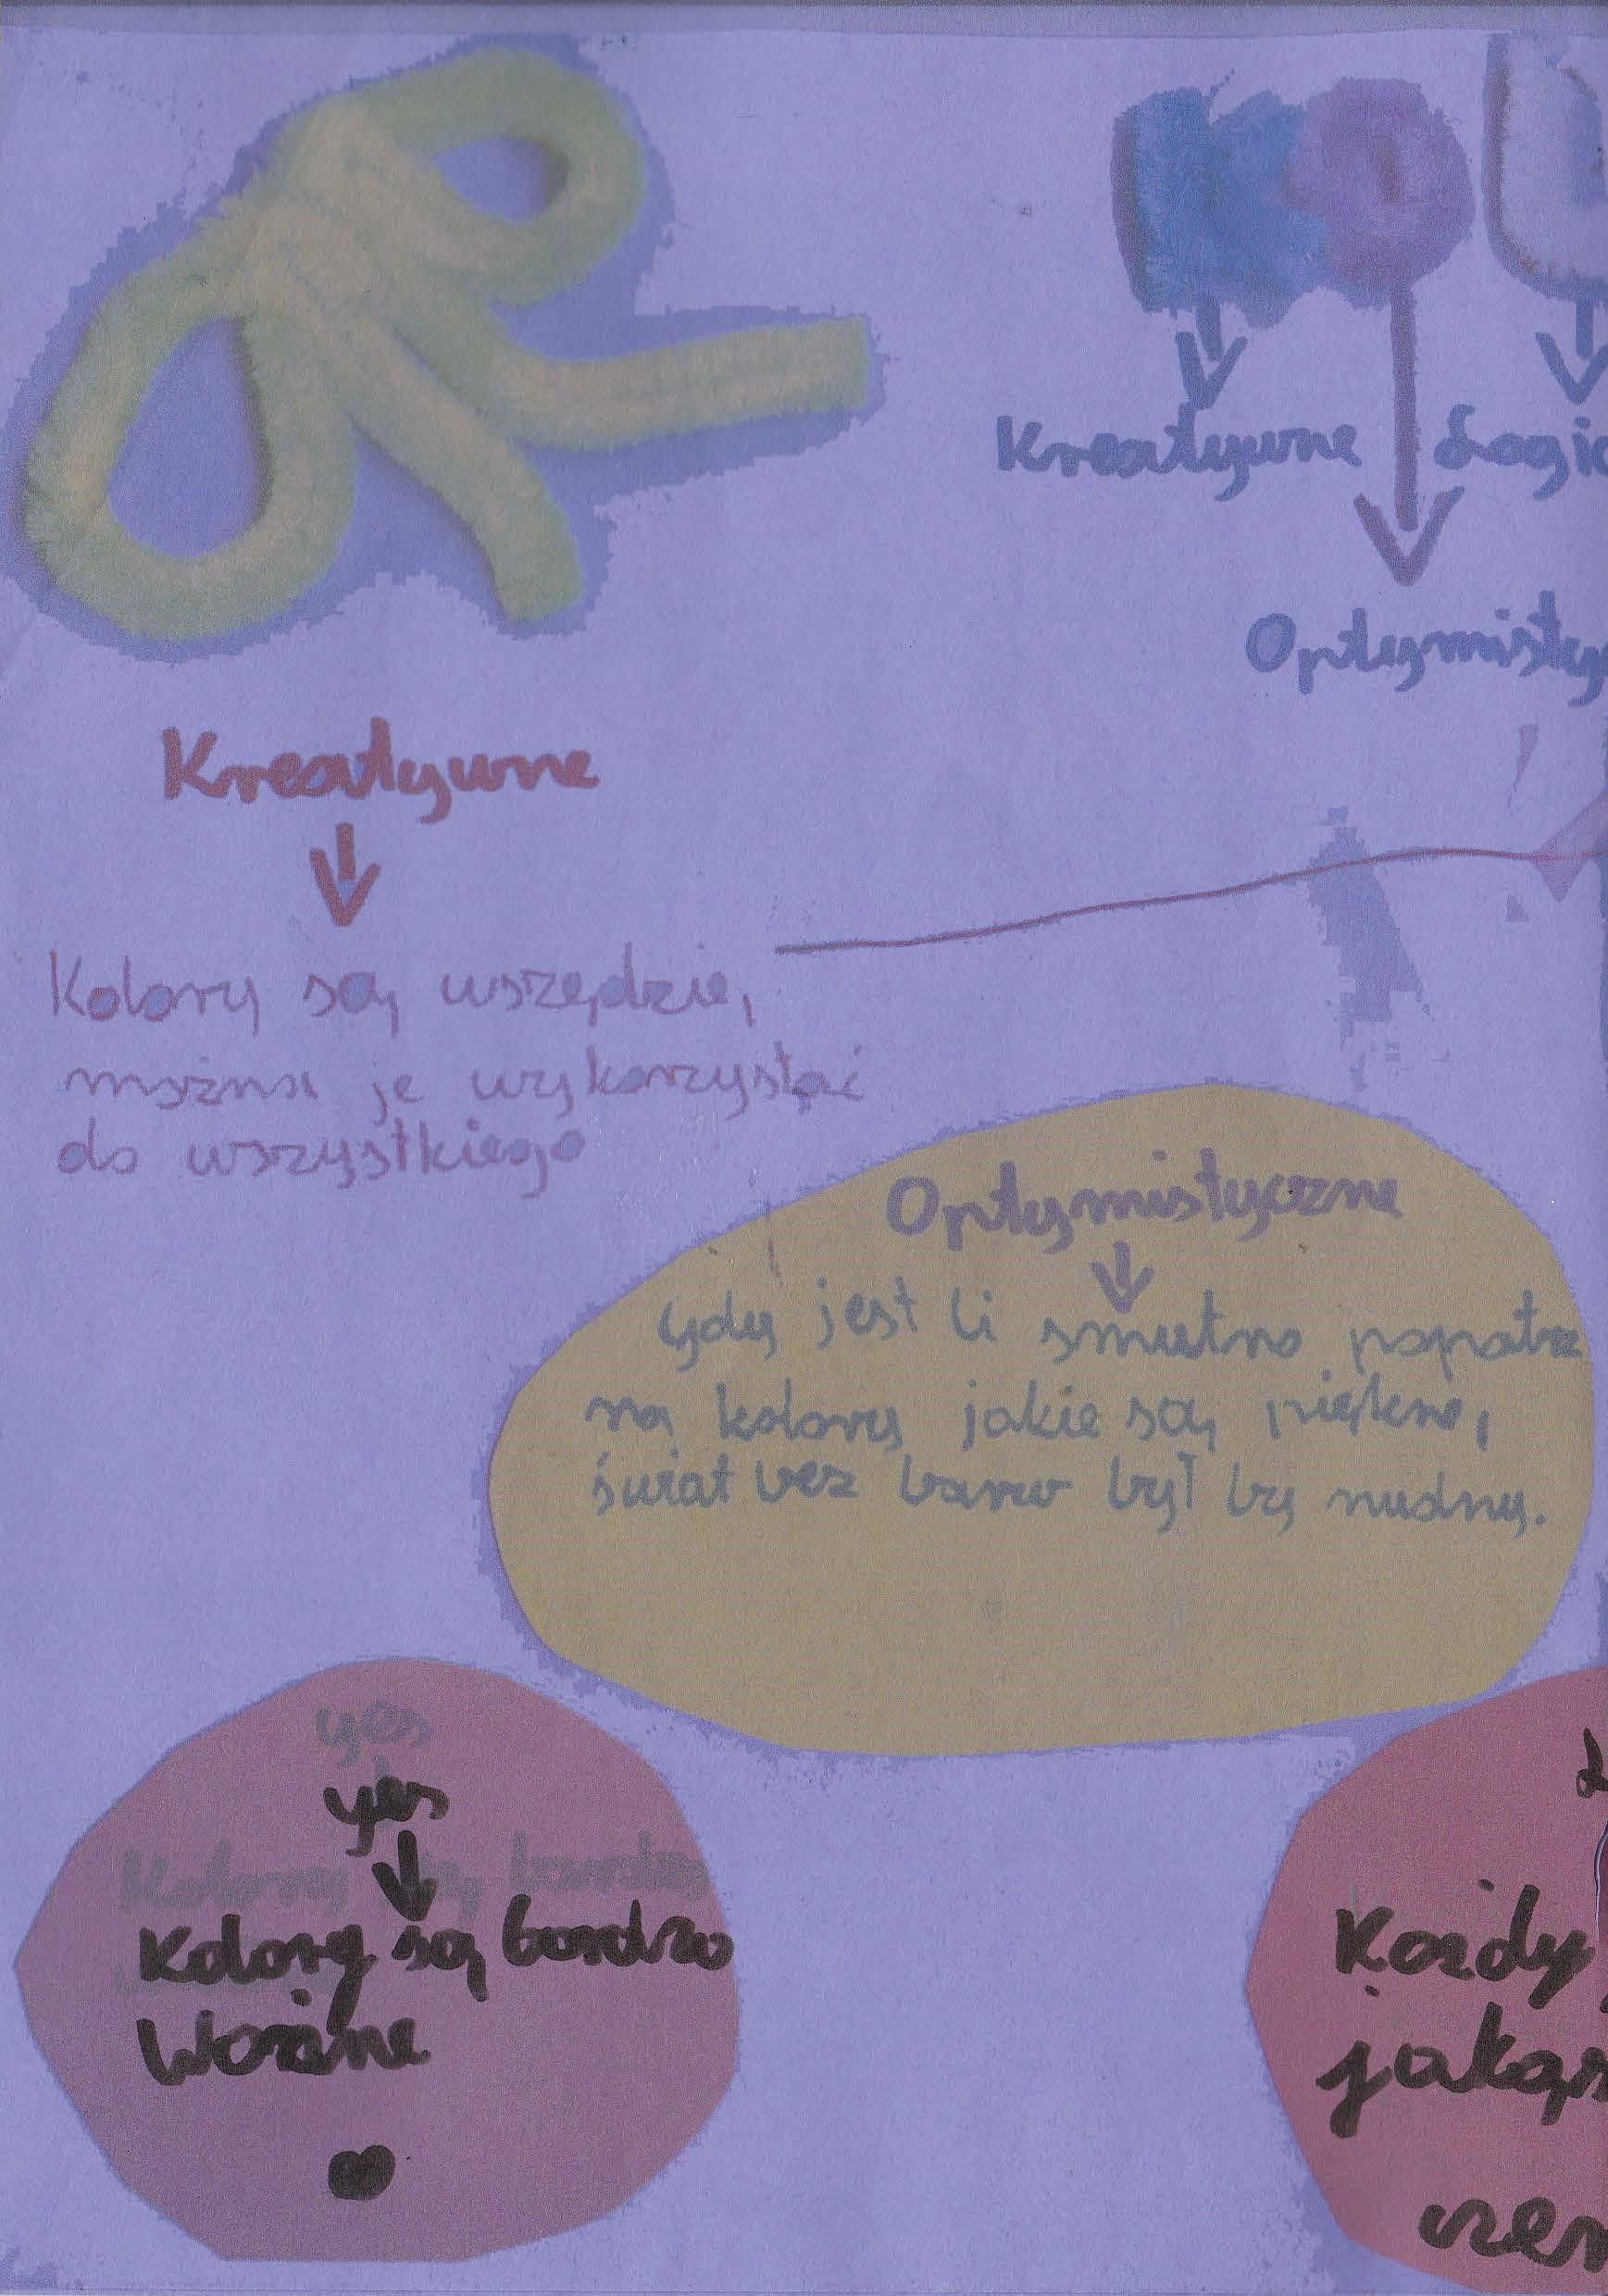 Kreatywne
Logic
Optymisty
Kreatywne
Kolory są wszędzie,
można je wykorzystać
do wszystkiego
Optymistyczne
Gdy jest Ci smutno popatrz
na kolory jakie są piękne,
świat bez barw był by nudny.
yes
yes
Kolory są bardzo
Kolory są bardzo
Ważne
Każdy
jakąś